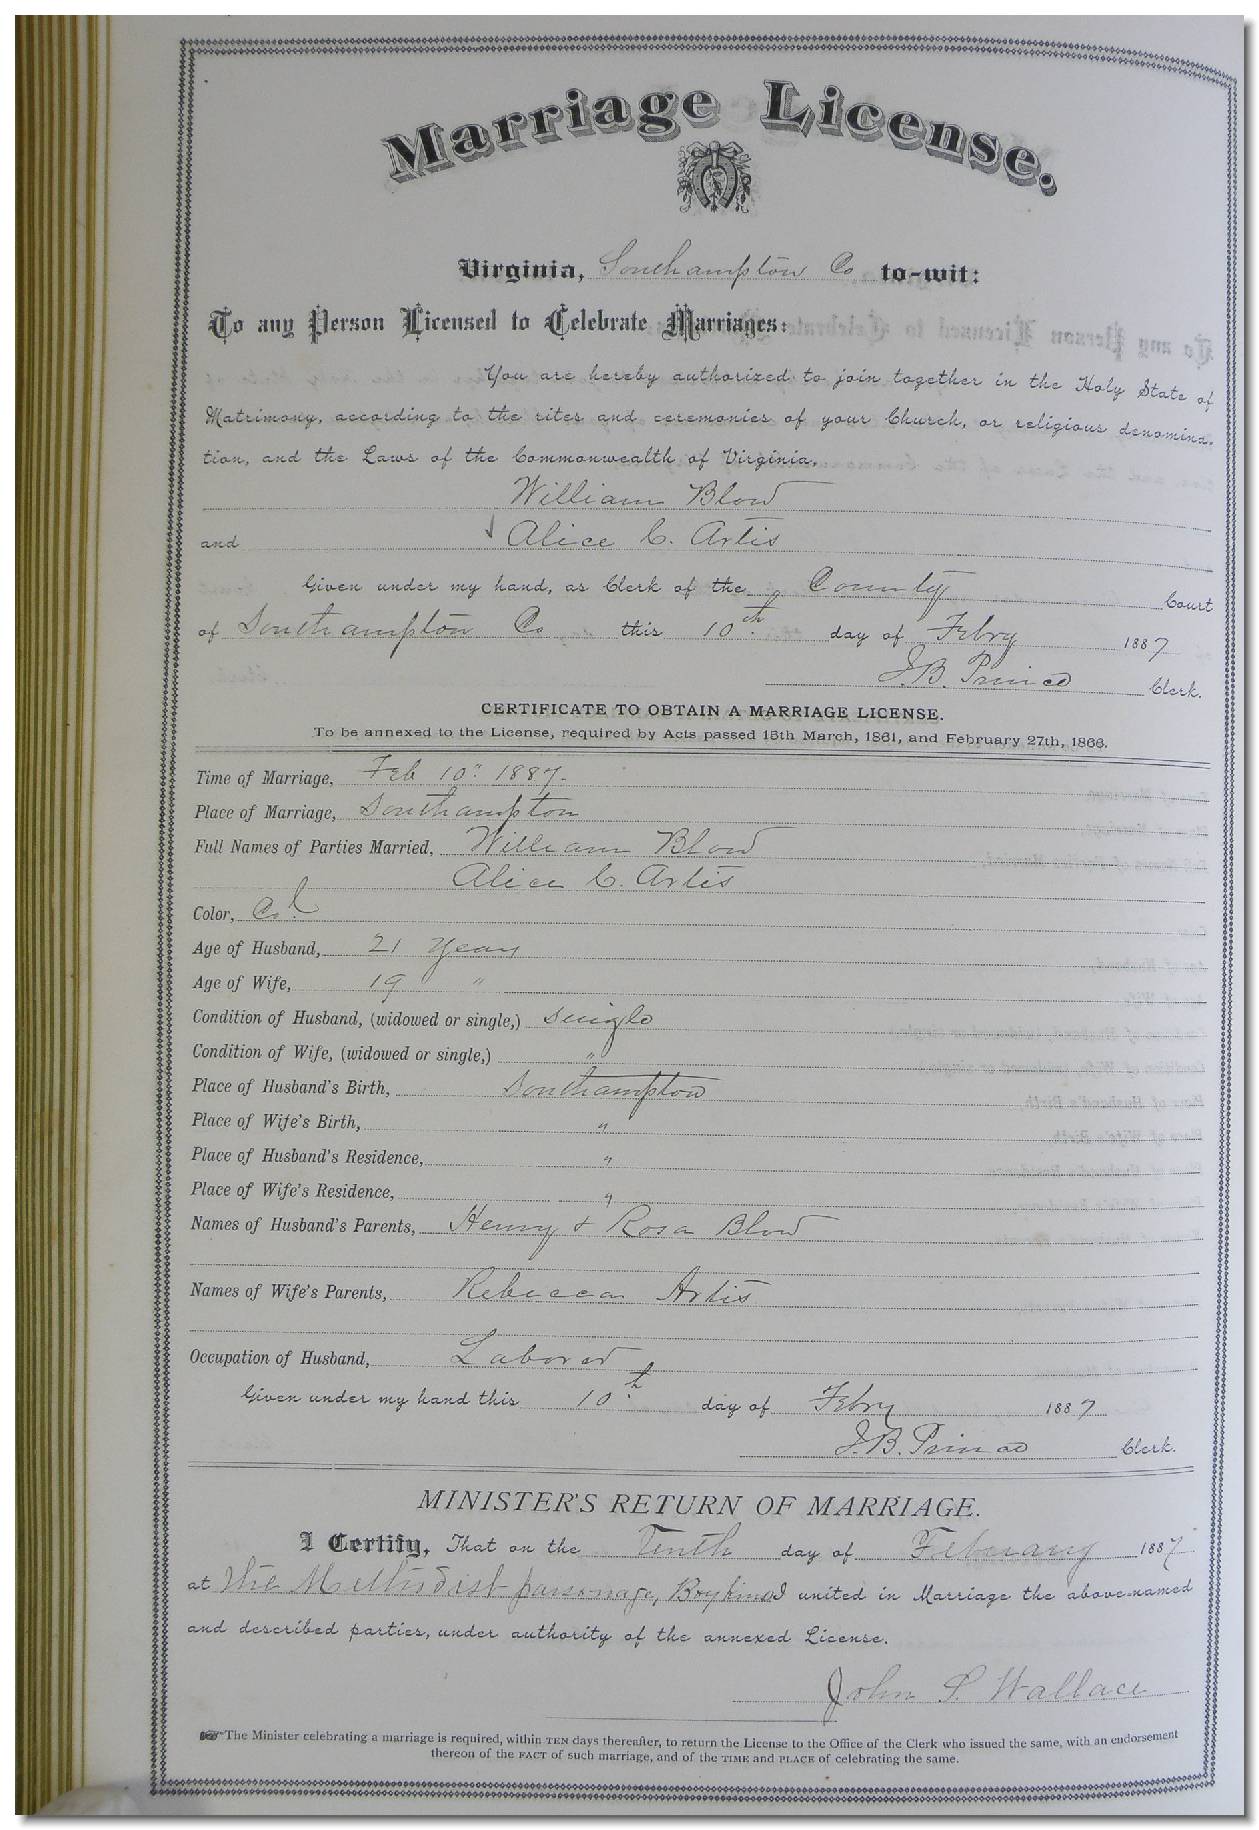 Marriage License.
Virginia, Southampton Co to-wit:
To any Person Licensed to Celebrate Marriages:
You are hereby authorized to join together in the Holy State of
Matrimony, according to the rites and ceremonies of your Church, or religious denomina-
tion, and the Laws of the Commonwealth of Virginia,
William Blow
and Alice C. Artis
Given under my hand, as Clerk of the County Court
of Southampton Co this 10th day of Febry 1887
J.B. Prince Clerk.
CERTIFICATE TO OBTAIN A MARRIAGE LICENSE.
To be annexed to the License, required by Acts passed 15th March, 1861, and February 27th, 1866.
Time of Marriage, Feb 10" 1887-
Place of Marriage, Southampton
Full Names of Parties Married, William Blow
Alice C. Artis
Color, Col
Age of Husband, 21 Years
Age of Wife, 19 "
Condition of Husband, (widowed or single,) single
Condition of Wife, (widowed or single,) "
Place of Husband's Birth, Southampton
Place of Wife's Birth, "
Place of Husband's Residence, "
Place of Wife's Residence, "
Names of Husband's Parents, Henry & Rosa Blow
Names of Wife's Parents, Rebecca Artis
Occupation of Husband, Laborer
Given under my hand this 10th day of Febry 1887
J.B. Prince Clerk.
MINISTER'S RETURN OF MARRIAGE.
I Certify, That on the Tenth day of February 1887
at the Methodist parsonage, Boykins I united in Marriage the above-named
and described parties, under authority of the annexed License.
John S. Wallace
The Minister celebrating a marriage is required, within TEN days thereafter, to return the License to the Office of the Clerk who issued the same, with an endorsement
thereon of the FACT of such marriage, and of the TIME and PLACE of celebrating the same.